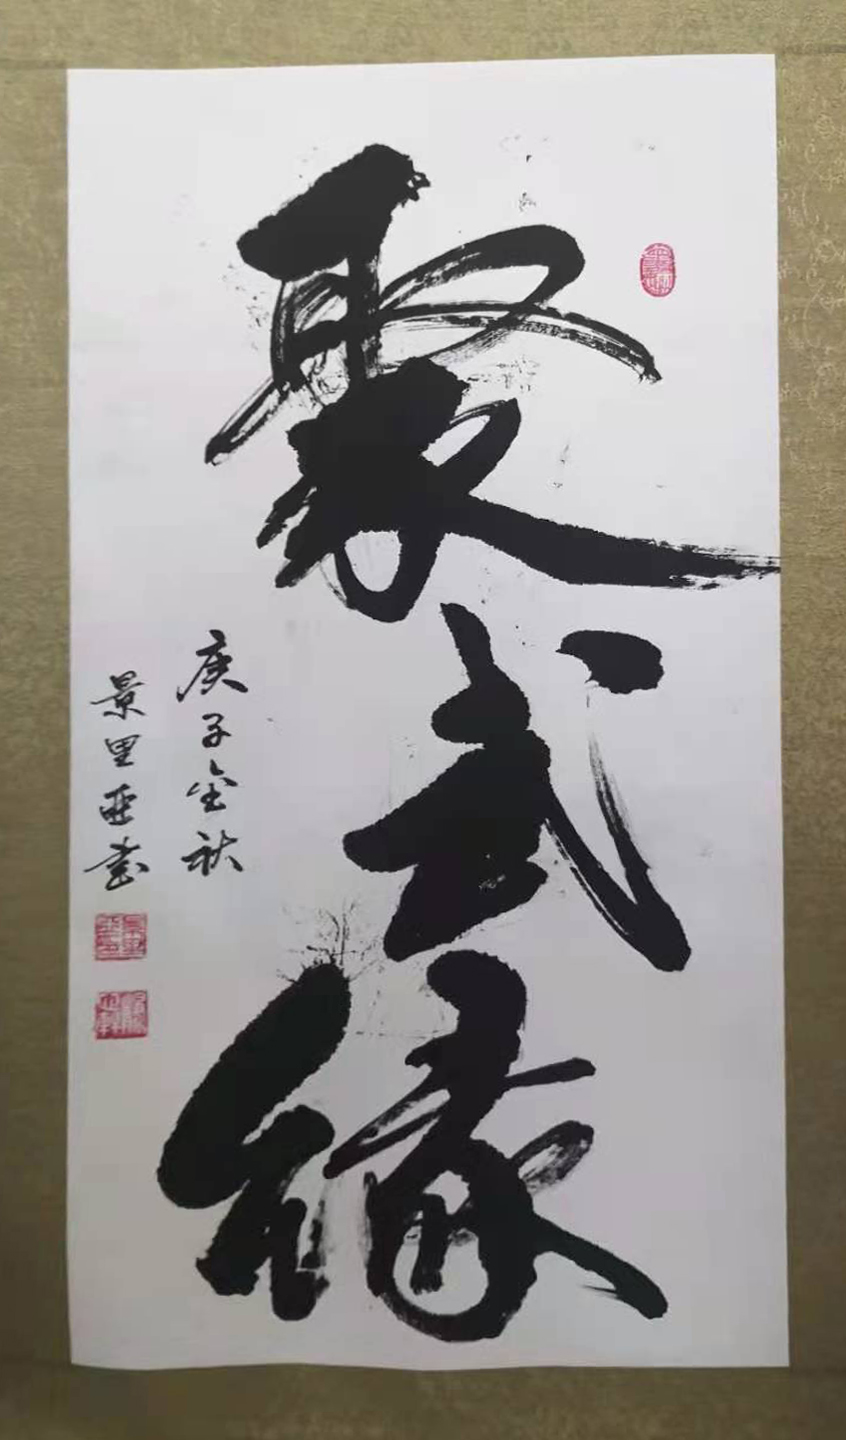 聚武缘
庚子金秋
景里亚书